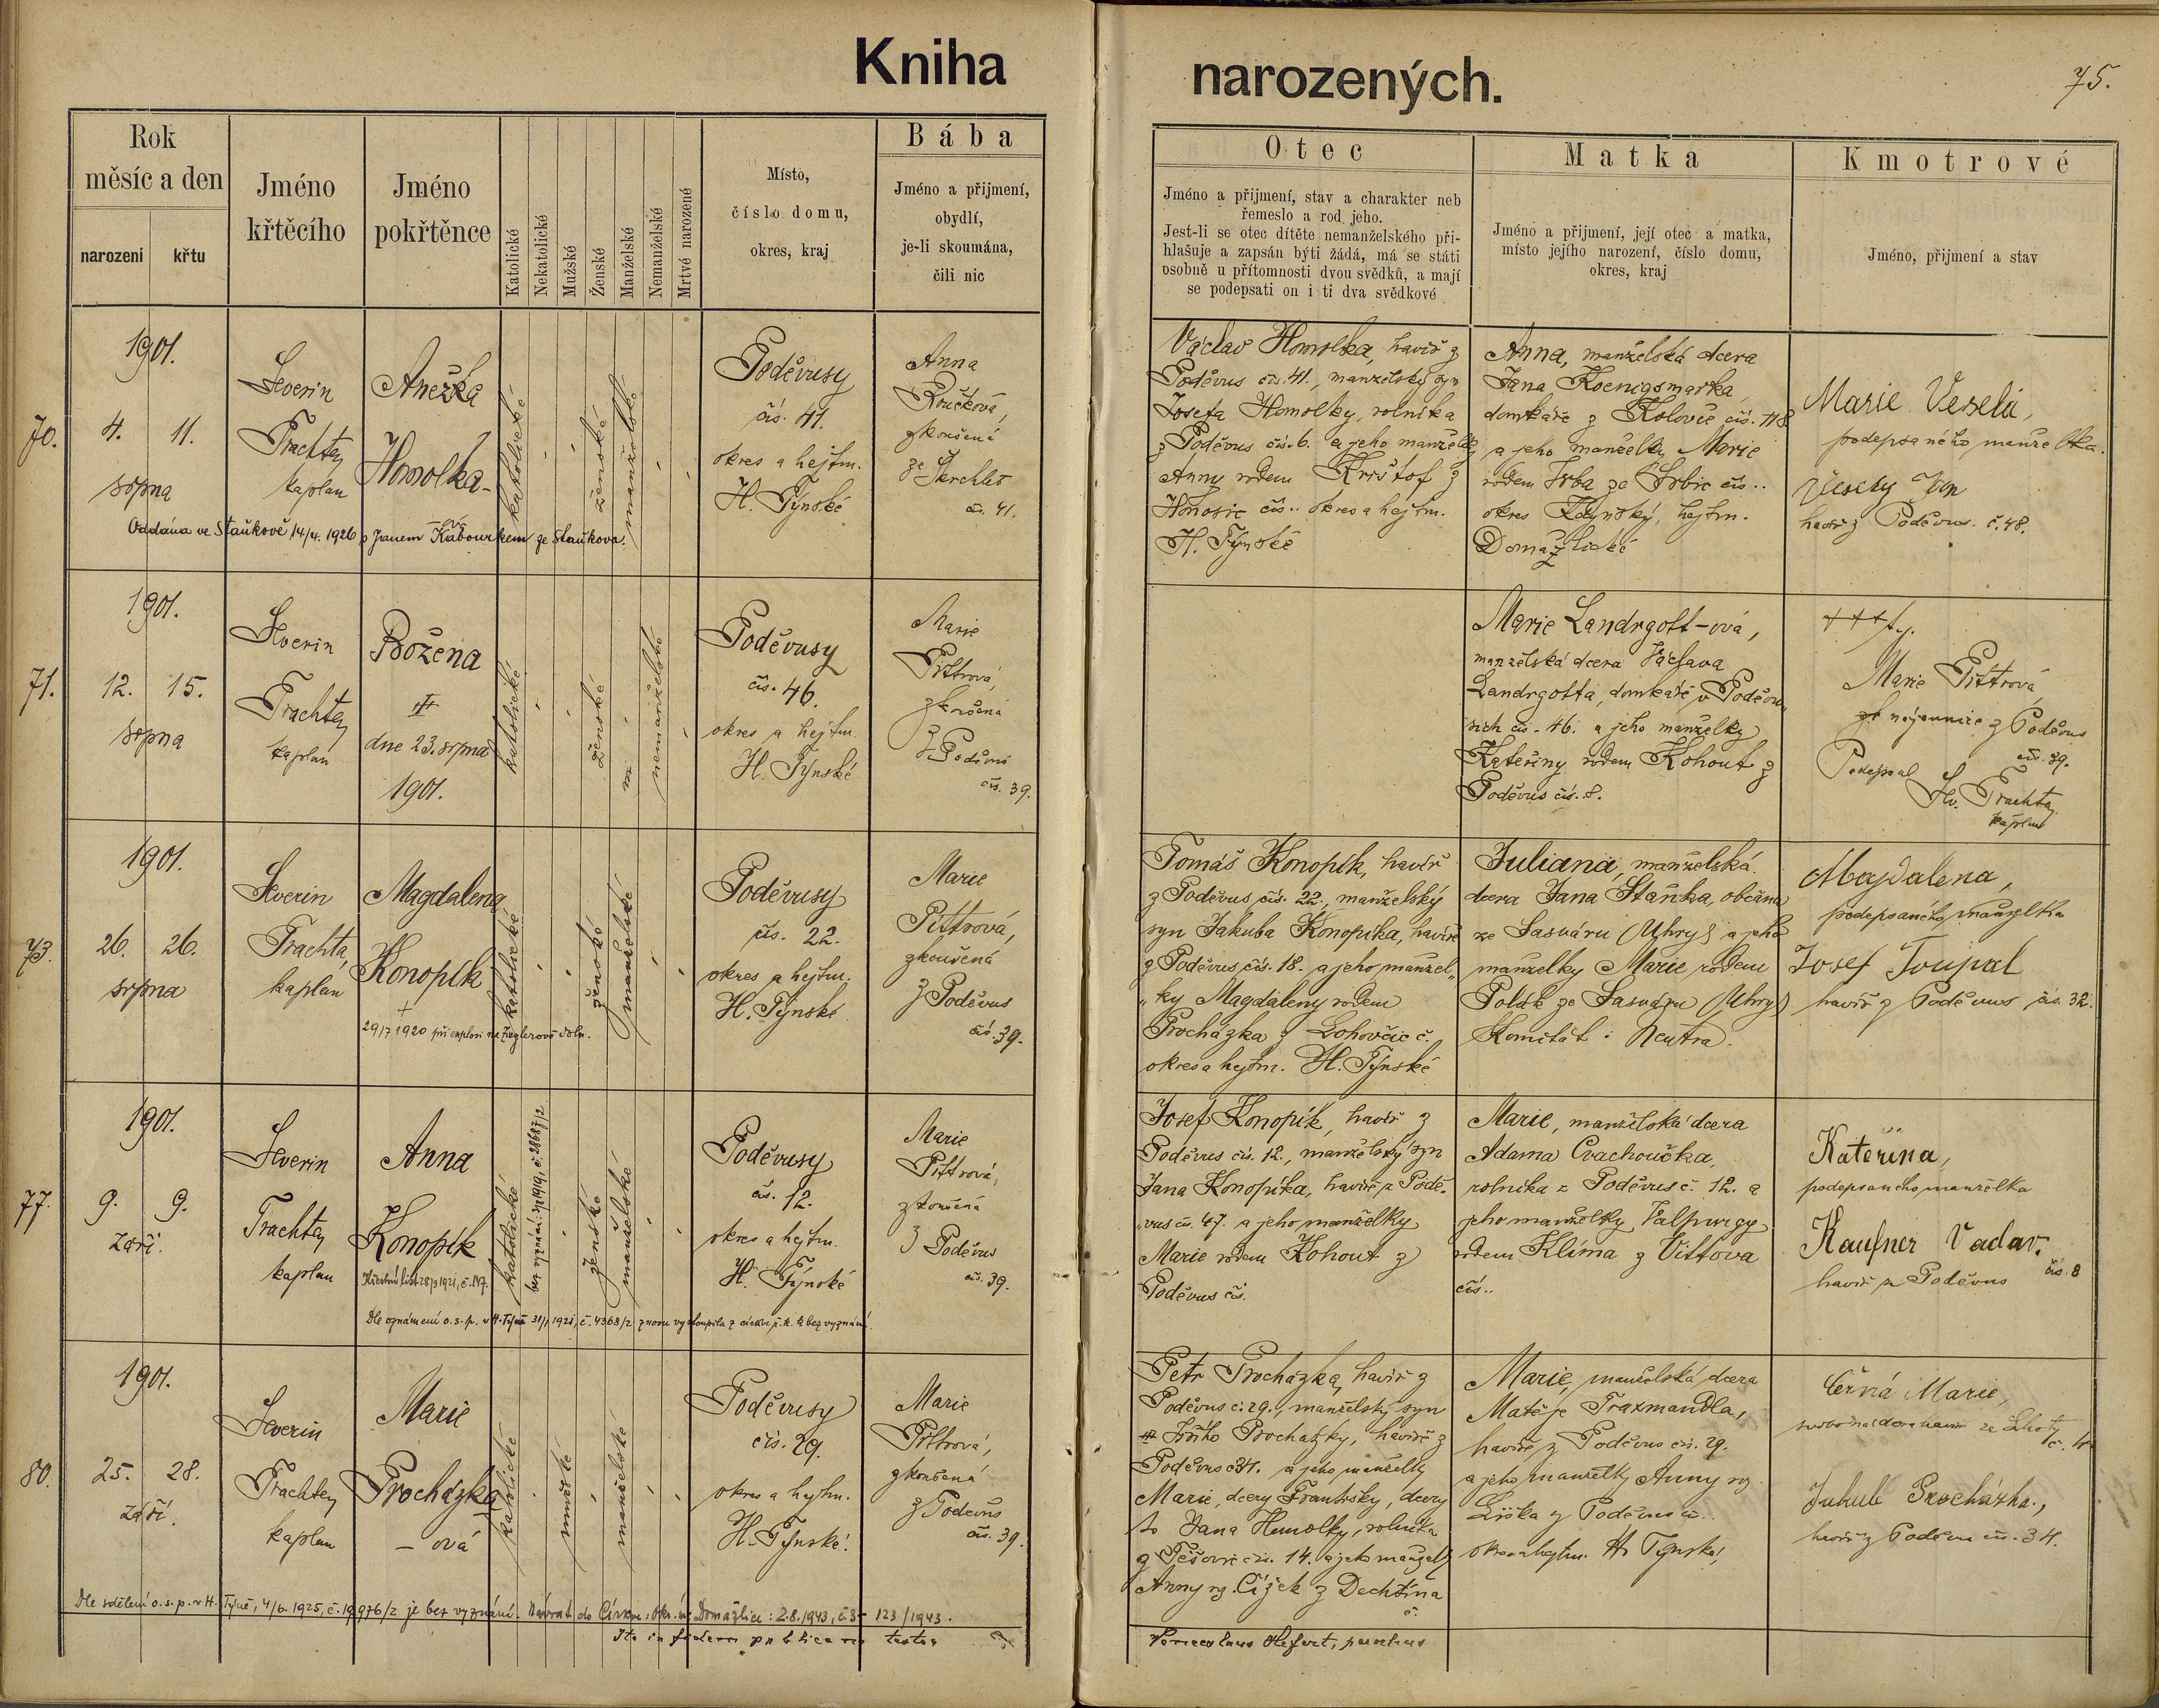 Kniha
narozených.
75.
Rok
měsíc a den
narození
křtu
Jméno
křtěcího
Jméno
pokřtěnce
Katolické
Nekatolické
Mužské
Ženské
Manželské
Nemanželské
Mrtvé narozené
Místo,
číslo domu,
okres, kraj
Bába
Jméno a přijmení,
obydlí,
je-li skoumána,
čili nic
Otec
Jméno a přijmení, stav a charakter neb
řemeslo a rod jeho.
Jest-li se otec dítěte nemanželského při-
hlašuje a zapsán býti žádá, má se státi
osobně u přítomnosti dvou svědků, a mají
se podepsati on i ti dva svědkové
Matka
Jméno a přijmení, její otec a matka,
místo jejího narození, číslo domu,
okres, kraj
Kmotrové
Jméno, přijmení a stav
70.
1901.
4. 11.
srpna
Severin
Trachta,
kaplan
Anežka
Homolka-
-ová
katolické
ženské
manželské
Poděvusy
čís. 41.
okres a hejtm.
H. Týnské
Anna
Roučková,
zkoušená
čís. 41.
Oddána ve Staňkově 14/4. 1926 s Janem Kabourkem ze Staňkova.
Václav Homolka, havíř z
Poděvus čís. 41., manželský syn
Josefa Homolky, rolníka
z Poděvus čís. 6. a jeho manželky
Anny rodem Krištof z
Honosic čís.. okres a hejtm.
H. Týnské
Anna, manželská dcera
Jana Koenigsmarka,
domkáře z Kolovče čís. 118
a jeho manželky Marie
rodem Vrba ze Srbic čís..
okres Kdyňský, hejtm.
Domažlické
Marie Veselá,
podepsaného manželka.
Veselý Jan
havíř z Poděvus. č. 48.
71.
1901.
12. 15.
srpna
Severin
Trachta,
kaplan
Božena
dne 23. srpna
1901.
katolické
ženské
nemanželské
Poděvusy
čís. 46.
okres a hejtm.
H. Týnské
Marie
Pittrová,
zkoušená
z Poděvus
čís. 39.
Marie Landrgott-ová,
manželská dcera Václava
Landrgotta, domkáře v Poděvu-
sích čís. 46. a jeho manželky
Kateřiny rodem Kohout z
Poděvus čís. 8.
+++
Marie Pittrová,
z Poděvus
čís. 39.
Podepsal
Sev. Trachta,
kaplan
73.
1901.
26. 26.
srpna
Severin
Trachta,
kaplan
Magdalena
Konopík
+
29/7 1920 při explosi na Zieglerově dole.
katolické
ženské
manželské
Poděvusy
čís. 22.
okres a hejtm.
H. Týnské
Marie
Pittrová,
zkoušená
z Poděvus
čís. 39.
Tomáš Konopík, havíř
z Poděvus čís. 22., manželský
syn Jakuba Konopíka, havíře
z Poděvus čís. 18. a jeho manžel-
ky Magdaleny rodem
Procházka z Lohovčic č.
okres a hejtm. H. Týnské
Juliana, manželská
dcera Jana Staňka, občana
ze Sasváru (Uhry) a jeho
manželky Marie rodem
Polák ze Sasváru (Uhry)
Komitát: Neutra.
Magdalena,
podepsaného manželka
Josef Toupal
havíř z Poděvus čís. 32.
77.
1901.
9. 9.
září.
Severin
Trachta,
kaplan
Anna
Konopík
Křestní list 28/3 1921, č. 147.
katolické
bez vyznání: 1919, č. 28687/2
ženské
manželské
Poděvusy
čís. 12.
okres a hejtm.
H. Týnské
Marie
Pittrová,
zkoušená
z Poděvus
čís. 39.
Dle oznámení o. s. p. v H. Týně 31/1 1921, č. 4368/2 znovu vystoupila z církve ř. k. k bez vyznání.
Josef Konopík, havíř z
Poděvus čís. 12., manželský syn
Jana Konopíka, havíře z Podě-
vus čís. 47. a jeho manželky
Marie rodem Kohout z
Poděvus čís.
Marie, manželská dcera
Adama Cvachoučka,
rolníka z Poděvus č. 12. a
jeho manželky Valpurgy
rodem Klíma z Vittova
čís..
Kateřina,
podepsaného manželka
Kaufner Václav.
havíř z Poděvus čís. 8
80.
1901.
25. 28.
září.
Severin
Trachta,
kaplan
Marie
Procházka
- ová
katolické
mužské
manželské
Poděvusy
čís. 29.
okres a hejtm.
H. Týnské.
Marie
Pittrová,
zkoušená
z Poděvus
čís. 39.
Dle sdělení o. s. p. v H. Týně, 4/6. 1925, č. 19976/2 je bez vyznání. Návrat do Církve: Okr. úř. Domažlice: 2.8.1943, č. 3- 123/1943.
Ita in fidem publicam testor
Petr Procházka, havíř z
Poděvus č. 29., manželský syn
Jiřího Procházky, havíře z
Poděvus č. 34. a jeho manželky
Marie, dcery Františky, dcery
Jana Homolky, rolníka
čís. 14. a jeho manželky
Anny roz. Čížek z Dechtína
č.
Marie, manželská dcera
Matěje Traxmandla,
havíře z Poděvus čís. 29.
a jeho manželky Anny roz.
Liška z Poděvus č..
okres a hejtm. H. Týnské.
Černá Marie,
ze Lhoty
Jakub Procházka,
havíř z Poděvus čís. 34.
parochus